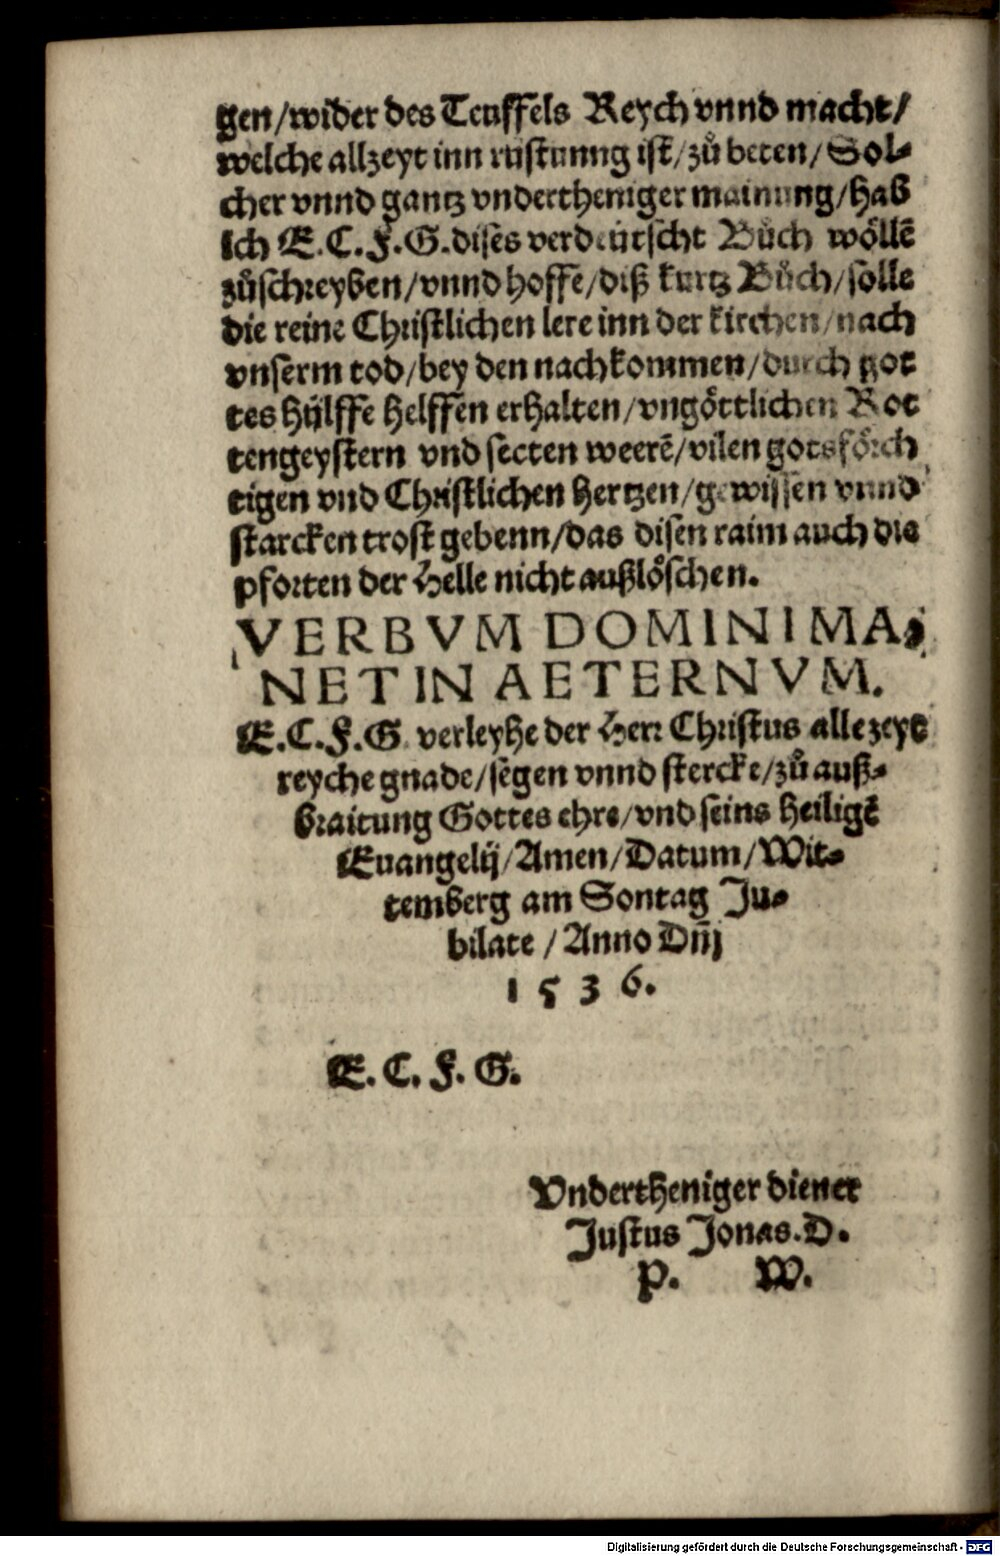 gen/wider des Teuffels Reych vnnd macht/
welche allzeyt inn rüstunng ist/zů beten/Sol-
cher vnnd gantz vndertheniger mainung/hab
ich E.C.F.G.dises verdeütscht Bůch wöllē
zůschreyben/vnnd hoffe/diß kurtz Bůch/solle
die reine Christlichen lere inn der kirchen/nach
vnserm tod/bey den nachkommen/durch got
tes hülffe helffen erhalten/vngöttlichen Rot
tengeystern vnd secten weerē/vilen gotsförch
tigen vnd Christlichen hertzen/gewissen vnnd
starcken trost gebenn/das disen raim auch die
pforten der Helle nicht außlöschen.
VERBVM DOMINI MA-
NET IN AETERNVM.
E.C.F.G. verleyhe der Herr Christus alle zeyt
reyche gnade/segen vnnd stercke/zů auß-
braitung Gottes ehre/vnd seins heiligē
Euangelij/Amen/Datum/Wit-
temberg am Sontag Ju-
bilate / Anno Dn̄j
1536.
E. C. F. G.
Vndertheniger diener
Justus Jonas.D.
P. W.
Digitalisierung gefördert durch die Deutsche Forschungsgemeinschaft - DFG